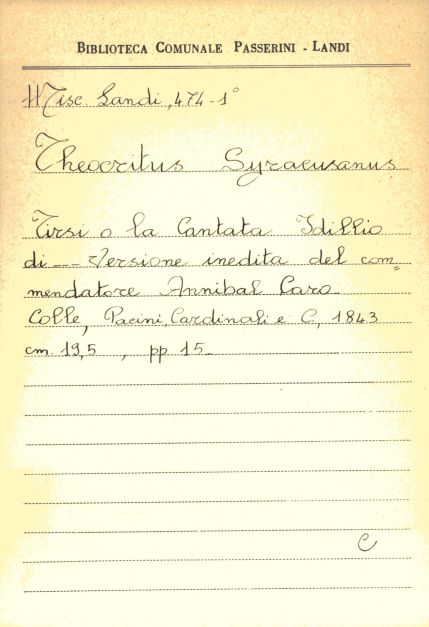 BIBLIOTECA COMUNALE PASSERINI - LANDI
Misc. Landi, 474-1°
Theocritus Syracusanus
Tirsi o la Cantata Idillio
di--- Versione inedita del com=
mendatore Annibal Caro
Colle, Pacini, Cardinali e C, 1843
cm. 19,5 , pp. 15
C